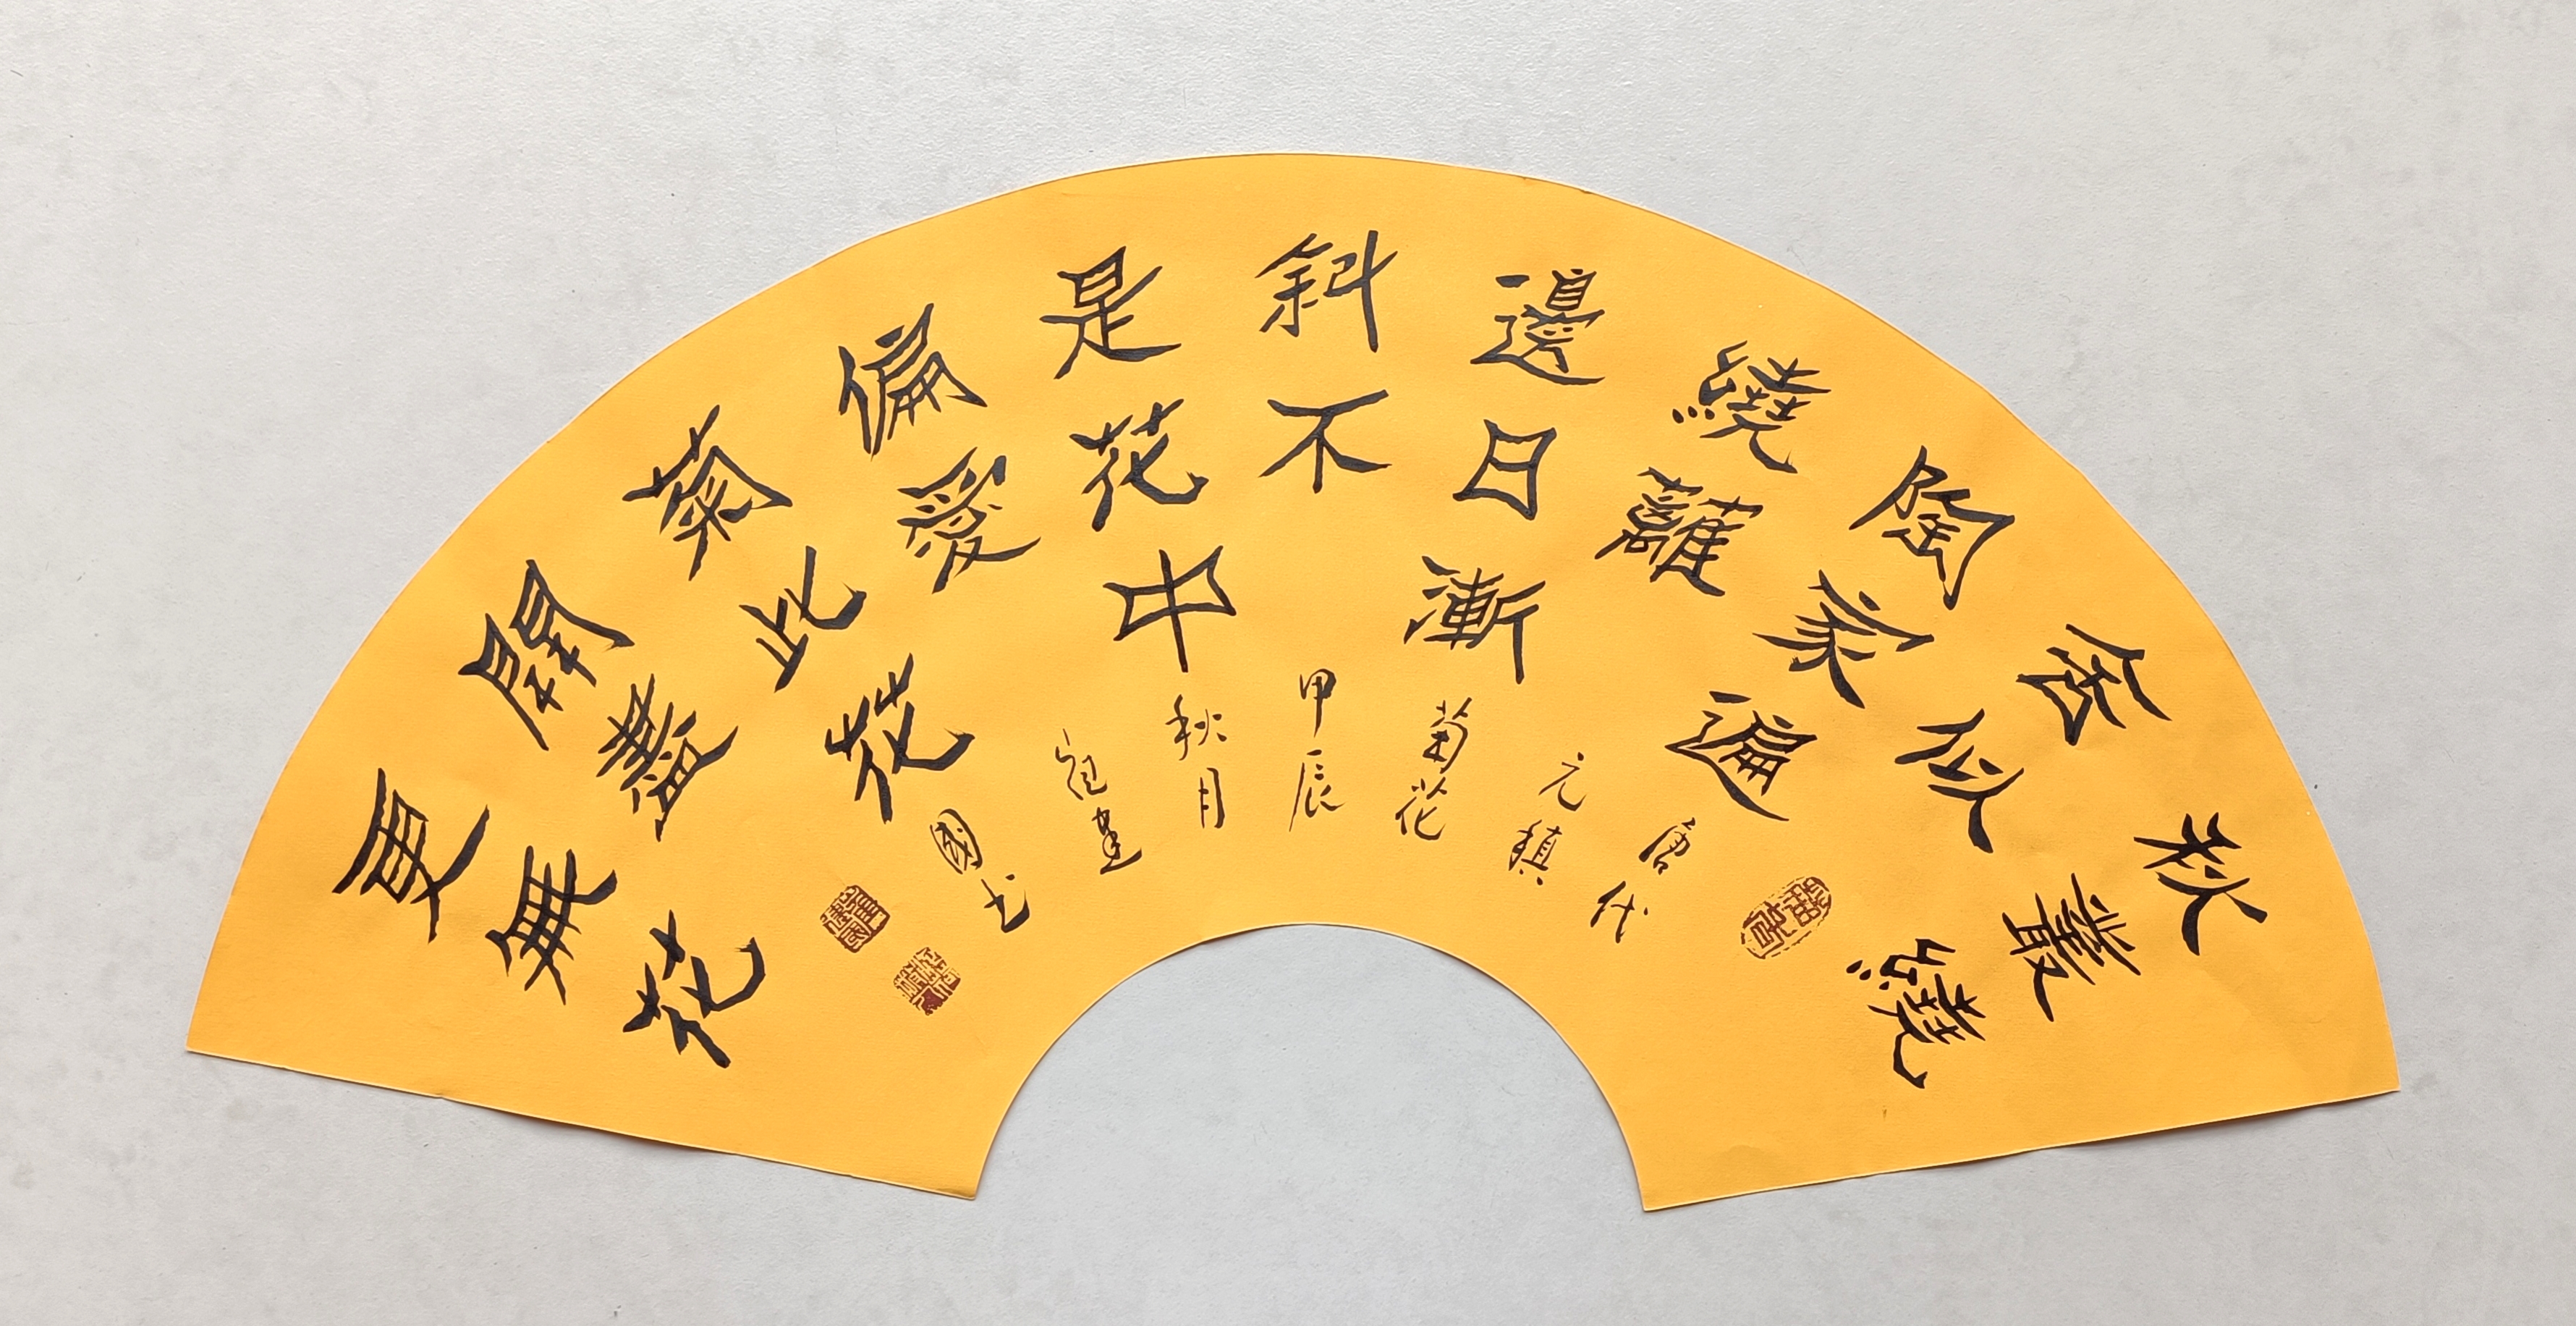 秋叢繞
舍似
陶家遍
繞蘺
邊日漸
斜不
是花中
偏愛
菊此花
開盡
更無花
唐代
元稹
菊花
甲辰
秋月
建
國书